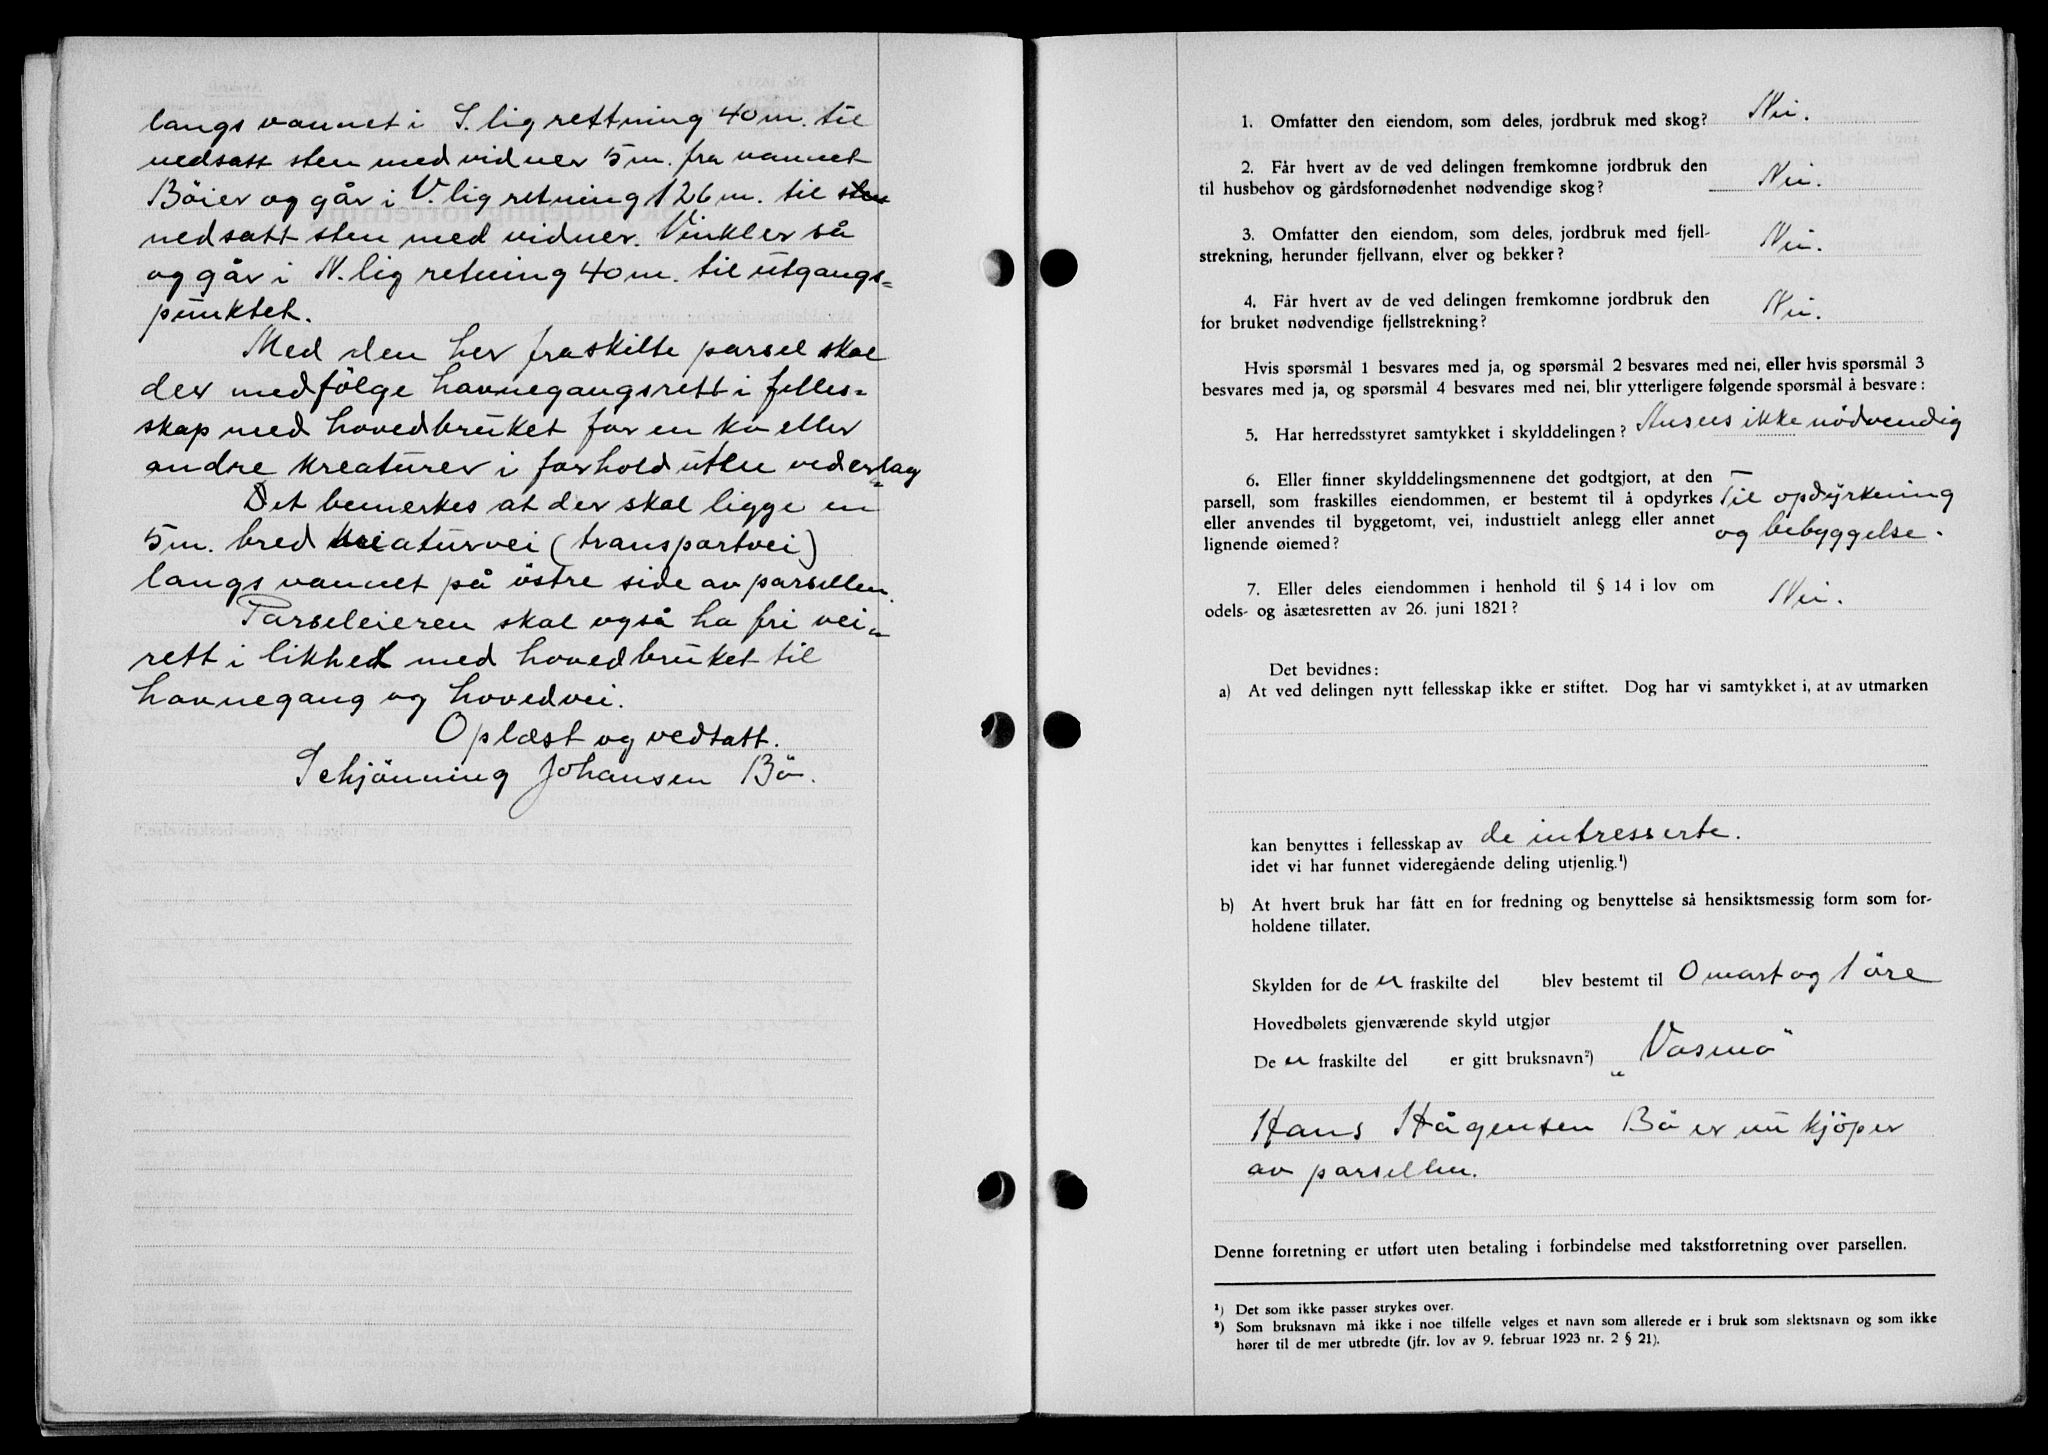 langs vannet i S.lig rettning 40 m. til
nedsatt sten med vidner 5 m. fra vannet
Böier og går i V.lig retning 126 m. til sten
nedsatt sten med vidner. Vinkler så
og går i N.lig retning 40 m. til utgangs=
punktet.
Med den her fraskilte parsel skal
der medfölge havnegangsrett i felles=
skap med hovedbruket for en ku eller
andre kreaturer i forhold uten vederlag
Det bemerkes at der skal ligge en
5 m. bred kreaturvei (transportvei)
langs vannet på östre side av parsellen.
Parseleieren skal også ha fri vei=
rett i likhet med hovedbruket til
havnegang og hovedvei.
Oplæst og vedtatt.
Schjönning Johansen Bö.
1. Omfatter den eiendom, som deles, jordbruk med skog? Nei.
2. Får hvert av de ved delingen fremkomne jordbruk den
til husbehov og gårdsfornødenhet nødvendige skog? Nei.
3. Omfatter den eiendom, som deles, jordbruk med fjell-
strekning, herunder fjellvann, elver og bekker? Nei.
4. Får hvert av de ved delingen fremkomne jordbruk den
for bruket nødvendige fjellstrekning? Nei.
Hvis spørsmål 1 besvares med ja, og spørsmål 2 besvares med nei, eller hvis spørsmål 3
besvares med ja, og spørsmål 4 besvares med nei, blir ytterligere følgende spørsmål å besvare:
5. Har herredsstyret samtykket i skylddelingen? Ansees ikke nödvendig
6. Eller finner skylddelingsmennene det godtgjort, at den
parsell, som fraskilles eiendommen, er bestemt til å opdyrkes Til opdyrkning
eller anvendes til byggetomt, vei, industrielt anlegg eller annet og bebyggelse.
lignende øiemed?
7. Eller deles eiendommen i henhold til § 14 i lov om
odels- og åsætesretten av 26. juni 1821? Nei.
Det bevidnes:
a) At ved delingen nytt fellesskap ikke er stiftet. Dog har vi samtykket i, at av utmarken
kan benyttes i fellesskap av de intresserte.
idet vi har funnet videregående deling utjenlig.¹)
b) At hvert bruk har fått en for fredning og benyttelse så hensiktsmessig form som for-
holdene tillater.
Skylden for de n fraskilte del blev bestemt til 0 mark og 1 öre
Hovedbølets gjenværende skyld utgjør
De n fraskilte del er gitt bruksnavn²) „Vasmo"
Hans Hågensen Bö er nu kjöper
av parsellen.
Denne forretning er utført uten betaling i forbindelse med takstforretning over parsellen.
¹) Det som ikke passer strykes over.
²) Som bruksnavn må ikke i noe tilfelle velges et navn som allerede er i bruk som slektsnavn og som ikke
hører til de mer utbredte (jfr. lov av 9. februar 1923 nr. 2 § 21).